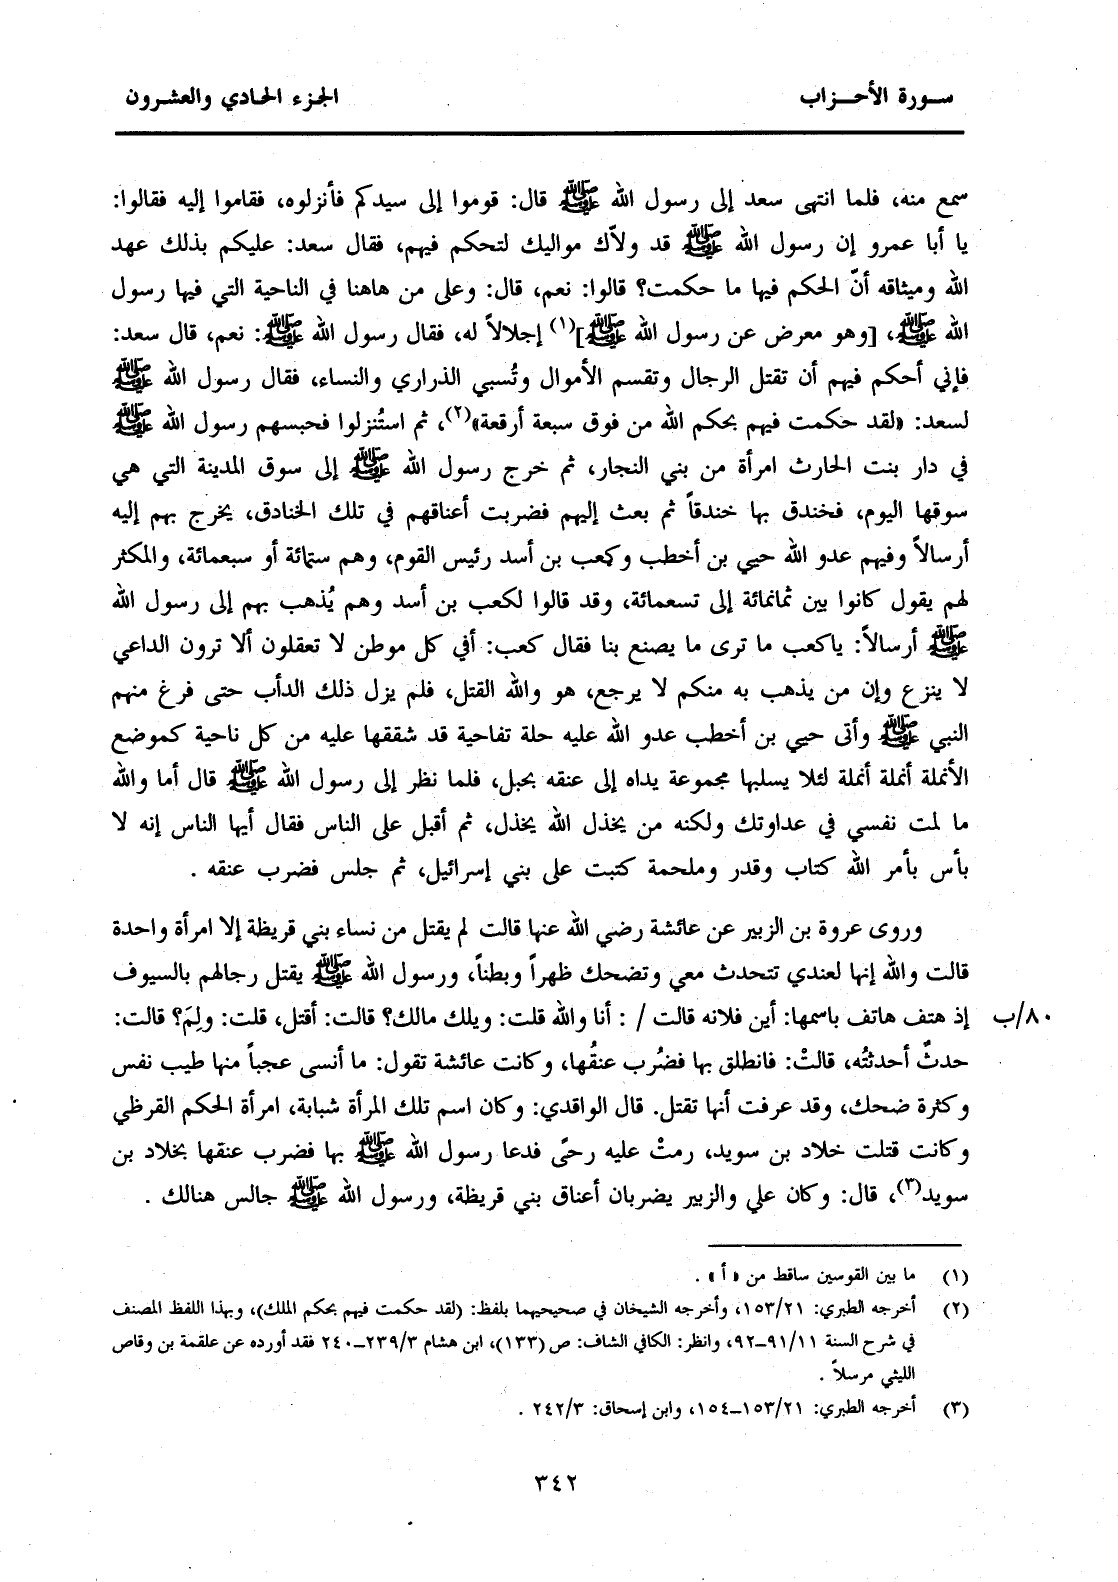 سورة الأحزاب
الجزء الحادي والعشرون
سمع منه، فلما انتهى سعد إلى رسول الله ﷺ قال: قوموا إلى سيدكم فأنزلوه، فقاموا إليه فقالوا:
يا أبا عمرو إن رسول الله ﷺ قد ولاّك مواليك لتحكم فيهم، فقال سعد: عليكم بذلك عهد
الله وميثاقه أنّ الحكم فيها ما حكمت؟ قالوا: نعم، قال: وعلى من هاهنا في الناحية التي فيها رسول
الله ﷺ، [وهو معرض عن رسول الله ﷺ](١) إجلالاً له، فقال رسول الله ﷺ: نعم، قال سعد:
فإني أحكم فيهم أن تقتل الرجال وتقسم الأموال وتُسبي الذراري والنساء، فقال رسول الله ﷺ
لسعد: «لقد حكمت فيهم بحكم الله من فوق سبعة أرقعة»(٢)، ثم استُنزلوا فحبسهم رسول الله ﷺ
في دار بنت الحارث امرأة من بني النجار، ثم خرج رسول الله ﷺ إلى سوق المدينة التي هي
سوقها اليوم، فخندق بها خندقاً ثم بعث إليهم فضربت أعناقهم في تلك الخنادق، يخرج بهم إليه
أرسالاً وفيهم عدو الله حيي بن أخطب وكعب بن أسد رئيس القوم، وهم ستمائة أو سبعمائة، والمكثر
لهم يقول كانوا بين ثمانمائة إلى تسعمائة، وقد قالوا لكعب بن أسد وهم يُذهب بهم إلى رسول الله
ﷺ أرسالاً: ياكعب ما ترى ما يصنع بنا فقال كعب: أفي كل موطن لا تعقلون ألا ترون الداعي
لا ينزع وإن من يذهب به منكم لا يرجع، هو والله القتل، فلم يزل ذلك الدأب حتى فرغ منهم
النبي ﷺ وأتى حيي بن أخطب عدو الله عليه حلة تفاحية قد شققها عليه من كل ناحية كموضع
الأنملة أنملة أنملة لئلا يسلبها مجموعة يداه إلى عنقه بحبل، فلما نظر إلى رسول الله ﷺ قال أما والله
ما لمت نفسي في عداوتك ولكنه من يخذل الله يخذل، ثم أقبل على الناس فقال أيها الناس إنه لا
بأس بأمر الله كتاب وقدر وملحمة كتبت على بني إسرائيل، ثم جلس فضرب عنقه .
وروى عروة بن الزبير عن عائشة رضي الله عنها قالت لم يقتل من نساء بني قريظة إلا امرأة واحدة
قالت والله إنها لعندي تتحدث معي وتضحك ظهراً وبطناً، ورسول الله ﷺ يقتل رجالهم بالسيوف
٨٠/ب إذ هتف هاتف باسمها: أين فلانه قالت / : أنا والله قلت: ويلك مالك؟ قالت: أقتل، قلت: ولِمَ؟ قالت:
حدثٌ أحدثتُه، قالتْ: فانطلق بها فضُرب عنقُها، وكانت عائشة تقول: ما أنسى عجباً منها طيب نفس
وكثرة ضحك، وقد عرفت أنها تقتل. قال الواقدي: وكان اسم تلك المرأة شبابة، امرأة الحكم القرظي
وكانت قتلت خلاد بن سويد، رمتْ عليه رحىً فدعا رسول الله ﷺ بها فضرب عنقها بخلاد بن
سويد(٣)، قال: وكان علي والزبير يضربان أعناق بني قريظة، ورسول الله ﷺ جالس هنالك .
(١) ما بين القوسين ساقط من «أ» .
(٢) أخرجه الطبري: ١٥٣/٢١، وأخرجه الشيخان في صحيحيهما بلفظ: (لقد حكمت فيهم بحكم الملك)، وبهذا اللفظ المصنف
في شرح السنة ٩١/١١ــ٩٢، وانظر: الكافي الشاف: ص (١٣٣)، ابن هشام ٢٣٩/٣ــ٢٤٠ فقد أورده عن علقمة بن وقاص
الليثي مرسلاً .
(٣) أخرجه الطبري: ١٥٣/٢١ــ١٥٤، وابن إسحاق: ٢٤٢/٣ .
٣٤٢